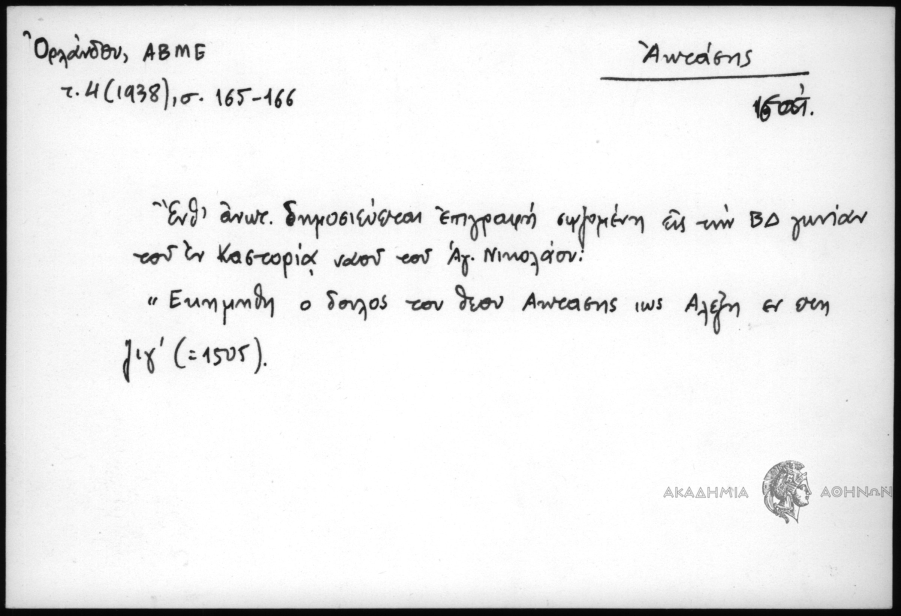 Ὀρλάνδου, ΑΒΜΕ
τ. 4 (1938), σ. 165-166
Ἀπτάσης
Ἔνθ' ἄνωτ. δημοσιεύεται ἐπιγραφή σῳζομένη εἰς τήν ΒΔ γωνίαν
τοῦ ἐν Καστορίᾳ ναοῦ τοῦ Ἁγ. Νικολάου:
"Εκημηθη ο δουλος του θεου Απτασης ιως Αλεξη εν ετη
ζιγ' (=1505).
ΑΚΑΔΗΜΙΑ ΑΘΗΝΩΝ